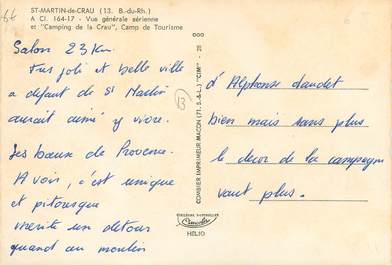 66
ST-MARTIN-de-CRAU (13. B.-du-Rh.)
A Cl. 164-17 - Vue générale aérienne
et "Camping de la Crau", Camp de Tourisme
Salon 23 Km.
Très joli et belle ville
a défaut de St Martin
aurait aimé y vivre.
Les baux de Provence.
A voir, c'est unique
et pitoresque
mérite un détour
quand au moulin
13
COMBIER IMPRIMEUR MACON (71. S.-&-L.) "CIM" - 25
HÉLIO
d'Alphonse daudet
bien mais sans plus
le décor de la campagne
vaut plus.